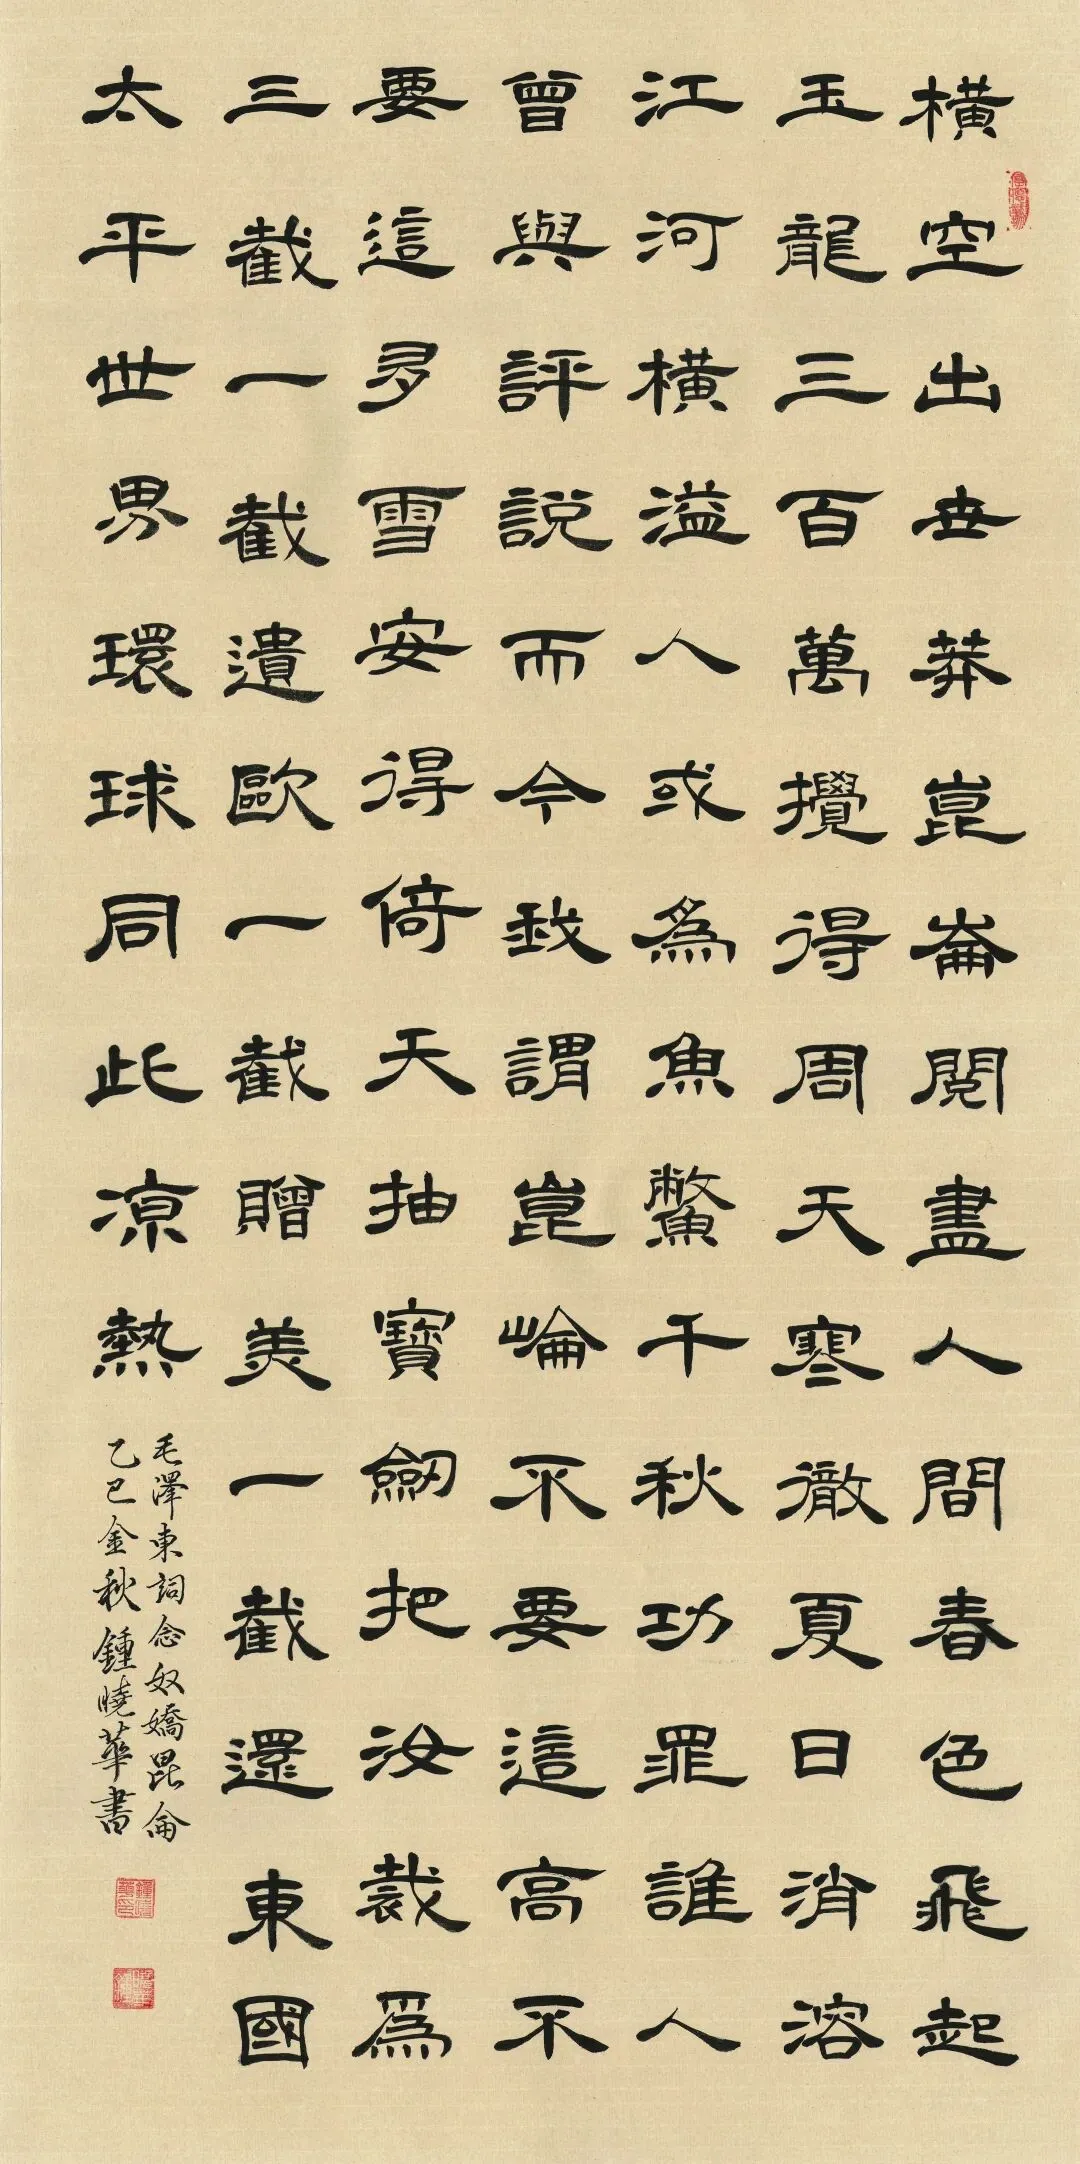 橫空出世莽崑崙閱盡人間春色飛起
玉龍三百萬攪得周天寒徹夏日消溶
江河橫溢人或為魚鱉千秋功罪誰人
曾與評說而今我謂崑崘不要這高不
要這多雪安得倚天抽寶劒把汝裁為
三截一截遺歐一截贈美一截還東國
太平世界環球同此涼熱
毛澤東詞念奴嬌昆侖
乙巳金秋鍾曉華書